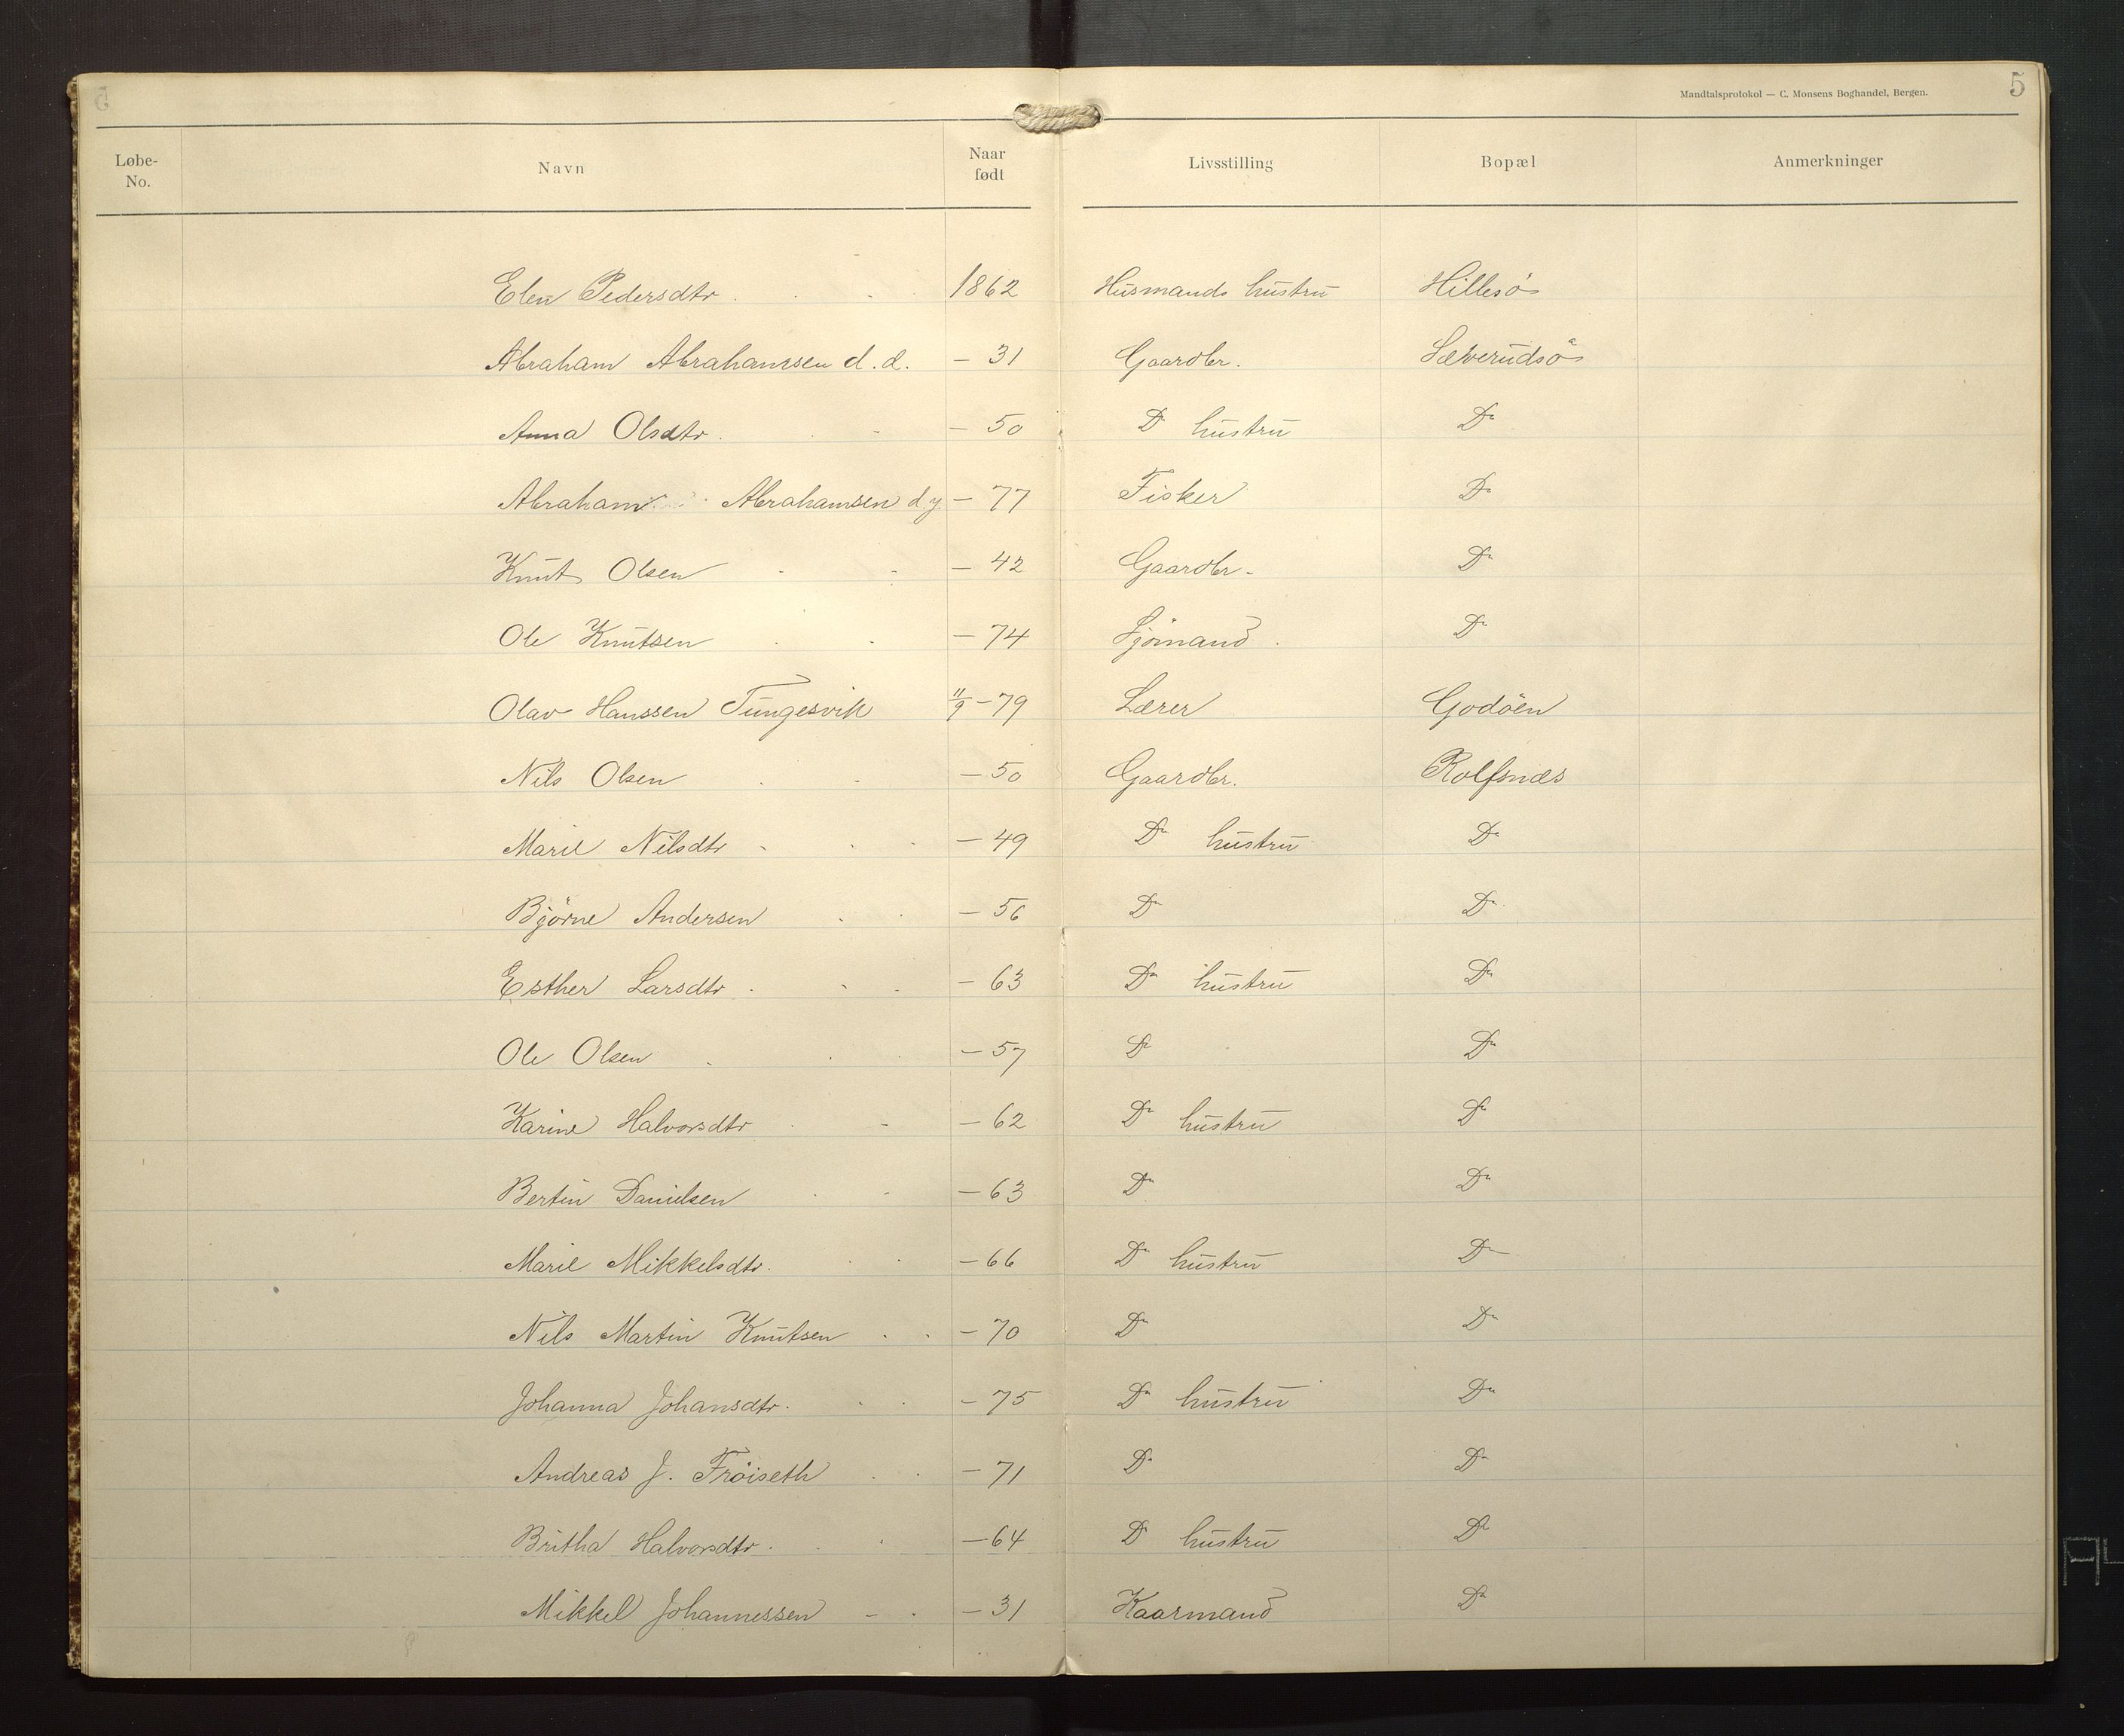 5
Mandtalsprotokol — C. Monsens Boghandel, Bergen.
Løbe-No. Navn Naar født Livsstilling Bopæl Anmerkninger
Elen Pedersdtr 1862 Husmands hustru Hillesö
Abraham Abrahamsen d.æ. — 31 Gaardbr. Sæverudsö
Anna Olsdtr. — 50 Do hustru Do
Abraham Abrahamsen d.y. — 77 Fisker Do
Knut Olsen — 42 Gaardbr. Do
Ole Knutsen — 74 Sjömand Do
Olav Hanssen Tungesvik 11/9 — 79 Lærer Godöen
Nils Olsen — 50 Gaardbr. Rolfsnæs
Marie Nilsdtr — 49 Do hustru Do
Björne Andersen — 56 Do Do
Esther Larsdtr — 63 Do hustru Do
Ole Olsen — 57 Do Do
Karine Halvorsdtr — 62 Do hustru Do
Bertin Danielsen — 63 Do Do
Marie Mikkelsdtr. — 66 Do hustru Do
Nils Martin Knutsen — 70 Do Do
Johanna Johansdtr. — 75 Do hustru Do
Andreas J. Fröiseth — 71 Do Do
Britha Halvorsdtr. — 64 Do hustru Do
Mikkel Johannessen — 31 Kaarmand Do